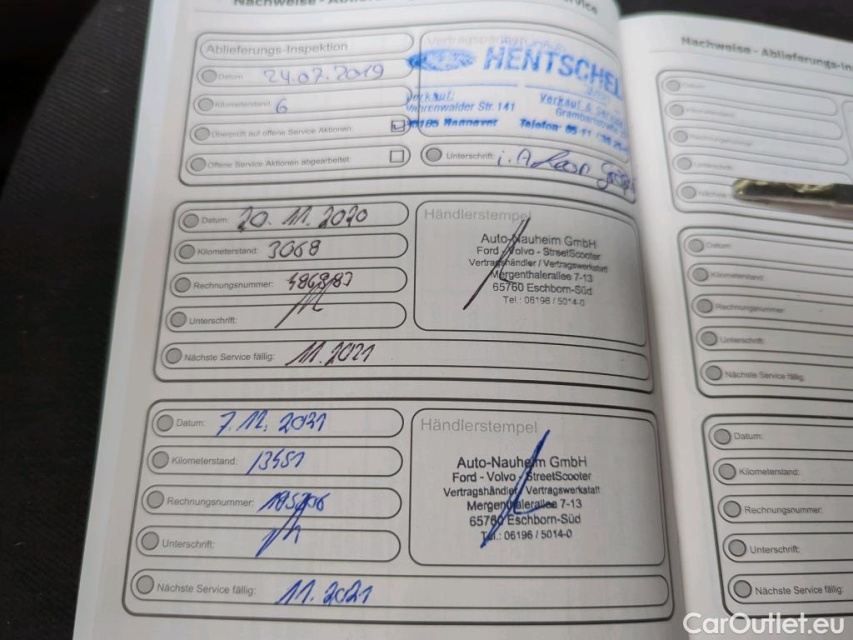 Nachweise - Ablieferungs-
Service
Ablieferungs-Inspektion
Datum: 24.07.2019
Kilometerstand: 6
Überprüft auf offene Service Aktionen:
Offene Service Aktionen abgearbeitet:
HENTSCHEL
Verkauf:
Vahrenwalder Str. 141
Hannover
Verkauf & Service
Telefon
Unterschrift: i. A.
Datum: 20.11.2020
Kilometerstand: 3068
Rechnungsnummer:
Unterschrift:
Nächste Service fällig: 11.2021
Händlerstempel
Auto-Nauheim GmbH
Ford - Volvo - StreetScooter
Vertragshändler / Vertragswerkstatt
Mergenthalerallee 7-13
65760 Eschborn-Süd
Tel.: 06196 / 5014-0
Datum: 7.12.2021
Kilometerstand: 13451
Rechnungsnummer:
Unterschrift:
Nächste Service fällig: 11.2021
Händlerstempel
Auto-Nauheim GmbH
Ford - Volvo - StreetScooter
Vertragshändler / Vertragswerkstatt
Mergenthalerallee 7-13
65760 Eschborn-Süd
Tel.: 06196 / 5014-0
Nachweise - Ablieferungs-In
Datum:
Kilometerstand:
Rechnungsnummer:
Unterschrift:
Nächste Service fällig:
Datum:
Kilometerstand:
Rechnungsnummer:
Unterschrift:
Nächste Service fällig:
CarOutlet.eu